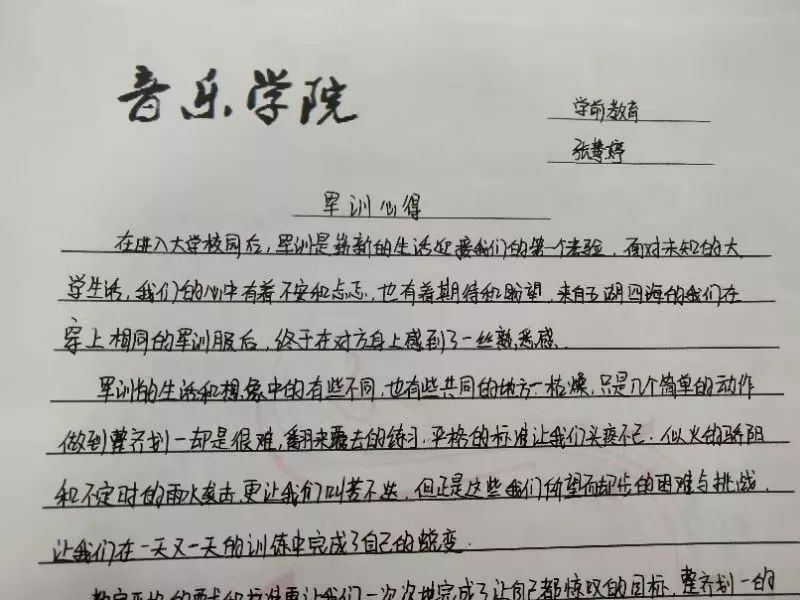 音乐学院
学前教育
张慧婷
军训心得
在进入大学校园后,军训是崭新的生活迎接我们的第一个考验,面对未知的大
学生活,我们的心中有着不安和忐忑,也有着期待和盼望,来自五湖四海的我们在
穿上相同的军训服后,终于在对方身上感到了一丝熟悉感.
军训的生活和想象中的有些不同,也有些共同的地方一枯燥,只是几个简单的动作
做到整齐划一却是很难,翻来覆去的练习.严格的标准让我们头疼不已.似火的骄阳
和不定时的雨水袭击,更让我们叫苦不迭,但正是这些我们仰望而却步的困难与挑战,
让我们在一天又一天的训练中完成了自己的蜕变.
教官严格的要求和标准更让我们一次次地完成了让自己都惊叹的目标,整齐划一的